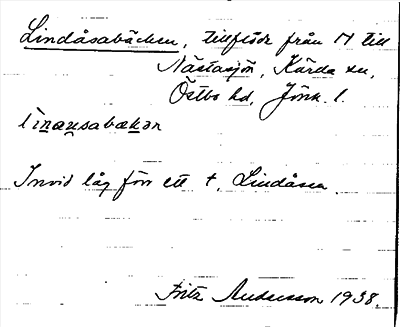 Lindåsabäcken, tillflöde från N till
Nästasjön, Kärda sn,
Östbo hd, Jönk. l.
linausabækən
Invid låg förr ett t. Lindåsen.
Fritz Andersson 1938.